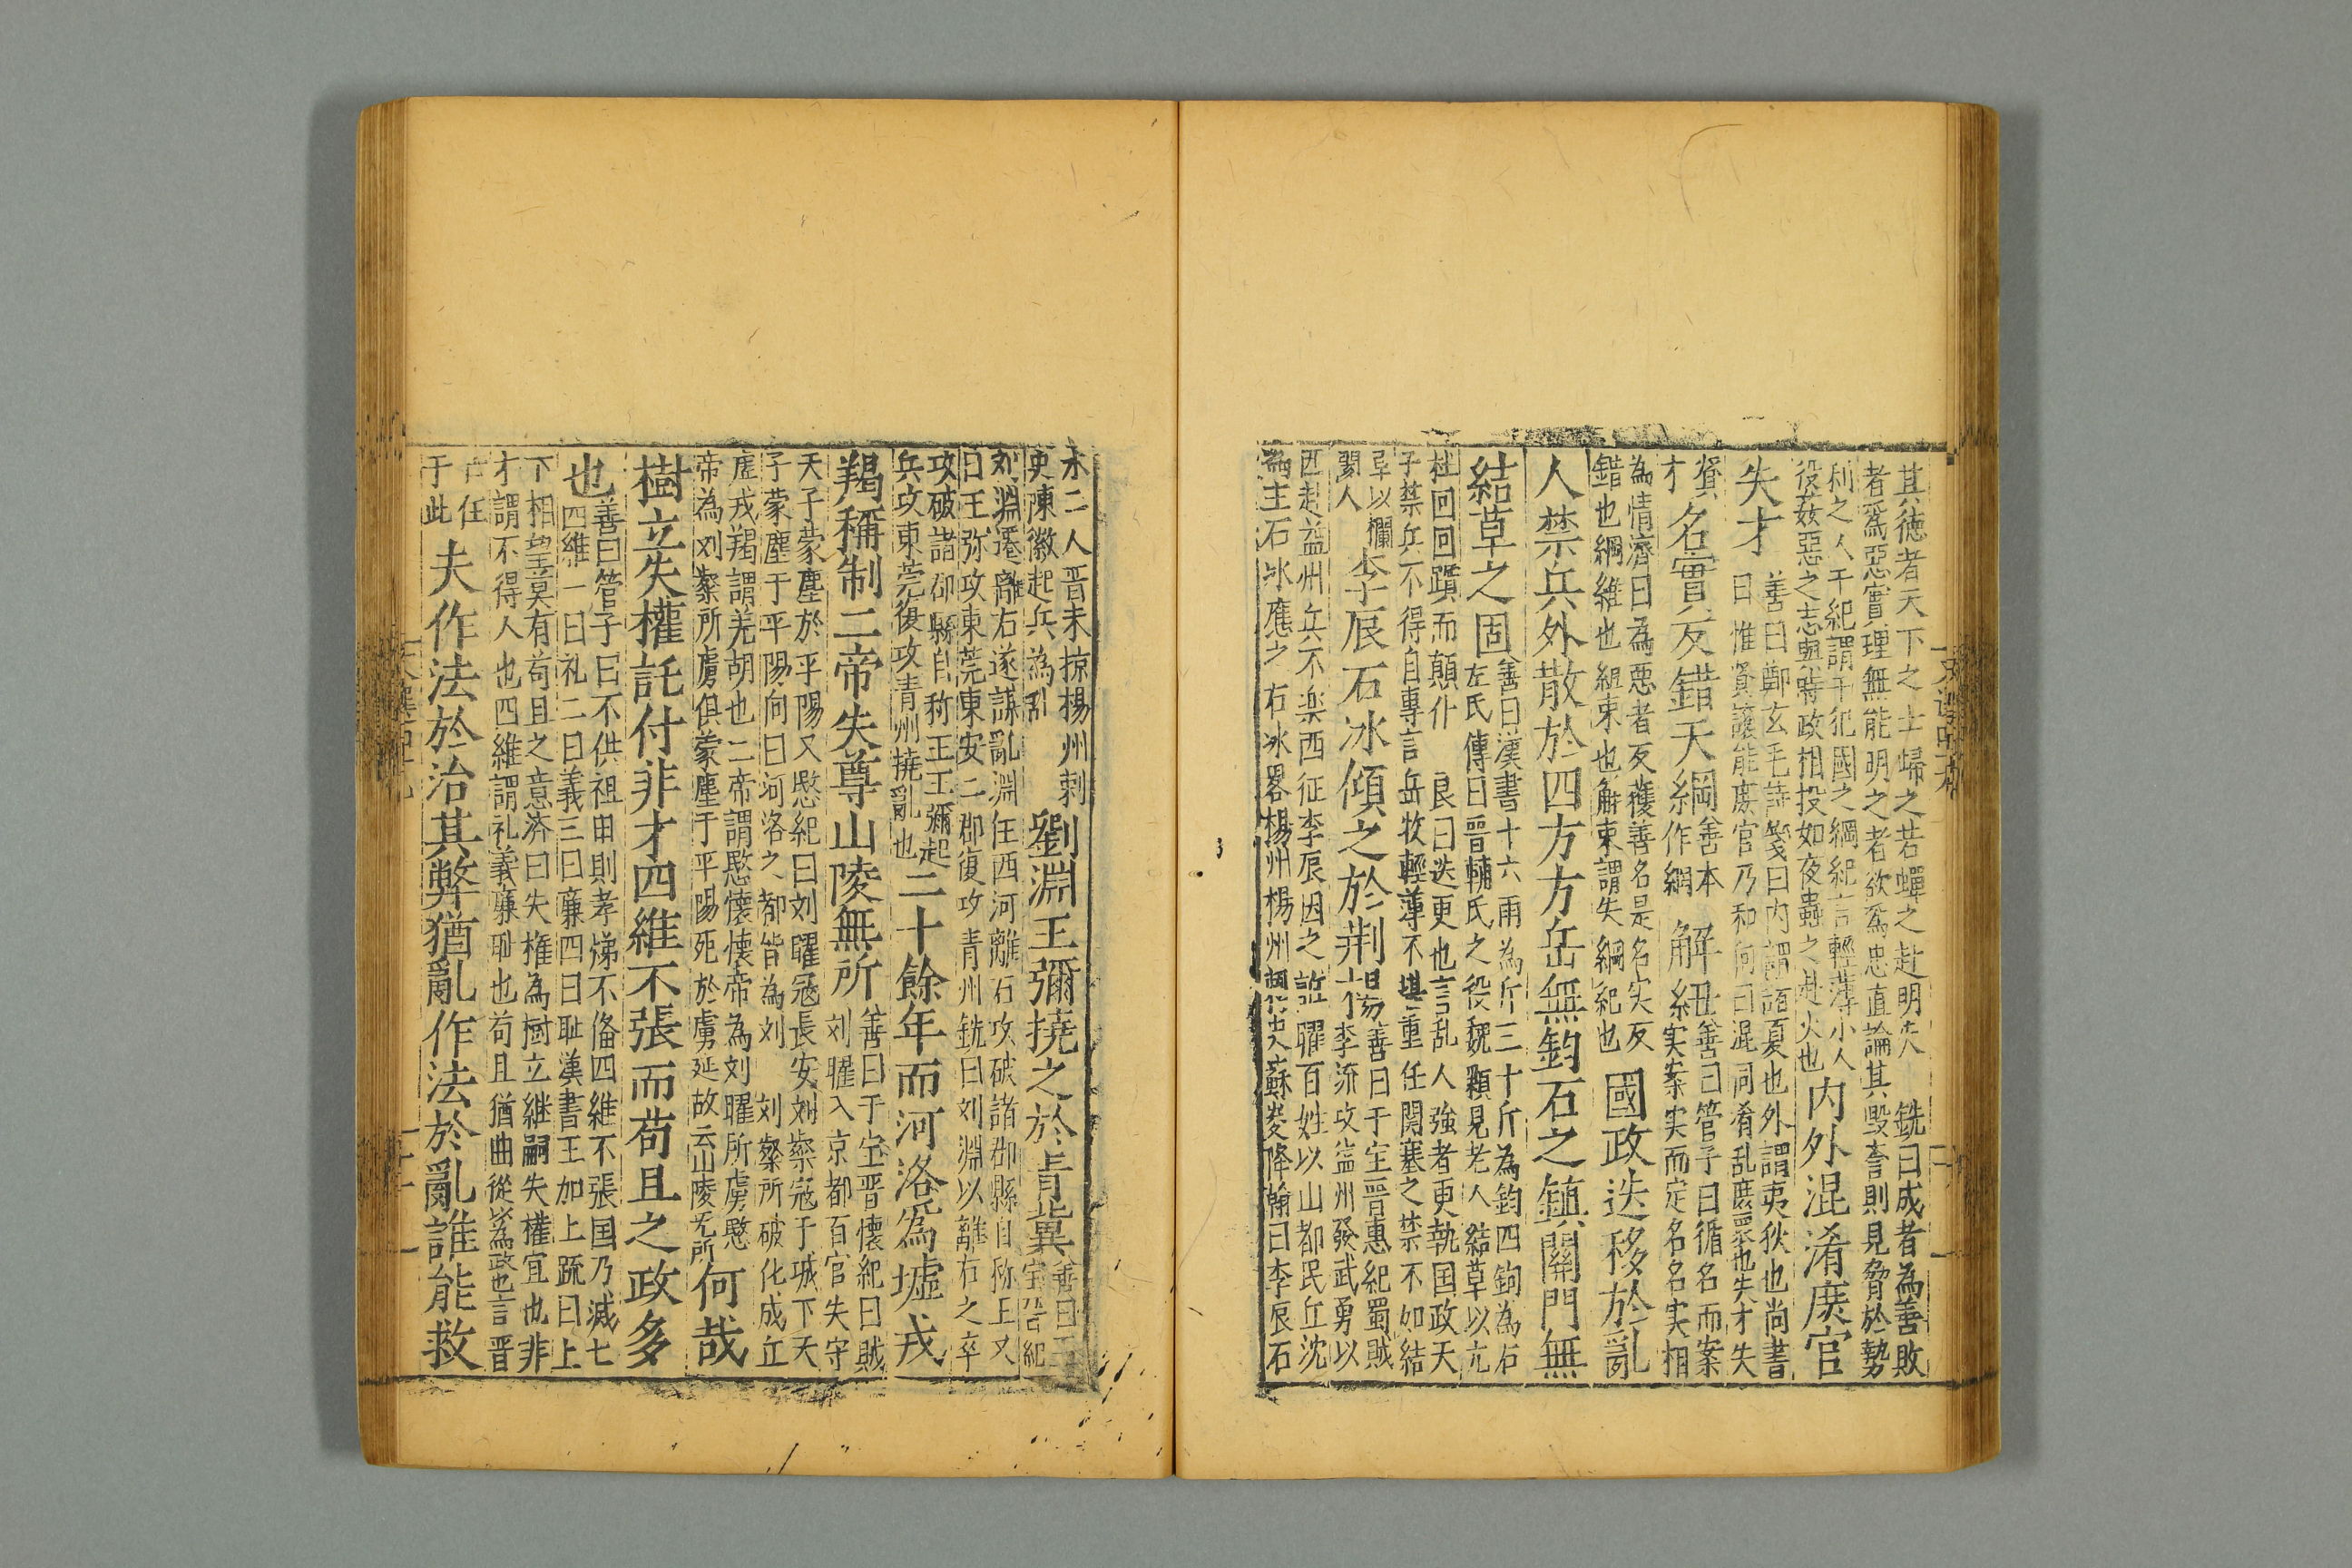 其徳者天下之士歸之若蟬之赴明火　銑曰成者為善敗
者為惡實理無能明之者欲為忠直論其毀譽則見脅於勢
利之人干紀謂干犯國之綱紀言輕薄小人
役姦惡之志與時政相投如夜蟲之赴火也
内外混淆庶官
失才
善曰鄭玄毛詩箋曰内謂諸夏也外謂夷狄也尚書
曰推賢讓能庶官乃和向曰混同肴乱庶眾也失才失
賢
才
名實反錯天綱
善本
作網
解紐
善曰管子曰循名而案
実案実而定名名実相
為情濟曰為悪者反獲善名是名実反
錯也綱維也紐束也解束謂失綱紀也
國政迭移於亂
人禁兵外散於四方方岳無鈞石之鎮關門無
結草之固
善曰漢書十六兩為斤三十斤為鈞四鈞為石
左氏傳曰晉輔氏之役魏顆見老人結草以亢
杜回回躓而顛仆　良曰迭更也言乱人強者更執国政天
子禁兵不得自專言岳牧輕薄不堪重任関塞之禁不如結
草以欄
関人
李辰石冰傾之於荆揚
善曰于宝晋惠紀蜀賊
李流攻益州發武勇以
西赴益州兵不楽西征李辰因之誑曜百姓以山都民丘沈
為主石冰應之石冰畧揚州楊州刺史蘇峻降翰曰李辰石
氷二人晋末掠楊州刺
史陳徽起兵為乱
劉淵王彌撓之於青冀
善曰于
宝晋紀
刘淵遷離石遂謀亂淵在西河離石攻破諸郡縣自称王又
曰王弥攻東莞東安二郡復攻青州銑曰刘淵以離石之卒
攻破諸郡縣自称王王彌起
兵攻東莞復攻青州撓亂也
二十餘年而河洛為墟戎
羯稱制二帝失尊山陵無所
善曰于宝晋懷紀曰賊
刘曜入京都百官失守
天子蒙塵於平陽又愍紀曰刘曜冦長安刘粲冦于城下天
子蒙塵于平陽向曰河洛之都皆為刘　刘粲所破化成丘
虛戎羯謂羌胡也二帝謂愍懷懷帝為刘曜所虜愍
帝為刘粲所虜俱蒙塵于平陽死於虜延故云山陵无所
何哉
樹立失權託付非才四維不張而苟且之政多
也
善曰管子曰不供祖田則孝悌不俻四維不張国乃滅七
四維一曰礼二曰義三曰廉四曰耻漢書王加上疏曰上
下相望莫有苟且之意济曰失権為樹立継嗣失權宜也非
才謂不得人也四維謂礼義廉耻也苟且猶曲從以為政也言晋
亡任
于此
夫作法於治其弊猶亂作法於亂誰能救